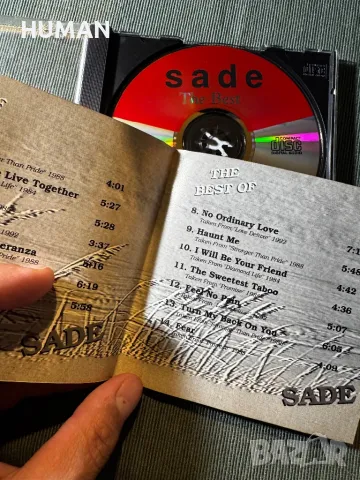 HUMAN
sade
The Best
COMPACT
disc
DIGITAL AUDIO
than Pride" 1988
4:01
Live Together
Life" 1984
5:27
5:28
3:37
eranza
Pride" 1988
5:16
6:19
5:58
SADE
THE
BEST OF
8. No Ordinary Love
Taken From "Love Deluxe" 1992
9. Haunt Me
Taken From "Stronger Than Pride" 1988
7:1
10. I Will Be Your Friend
Taken From "Diamond Life" 1984
5:48
11. The Sweetest Taboo
Taken From "Promise" 1985
4:42
12. Feel No Pain
4:36
13. Turn My Back On You
5:07
14. Fear
6:05
4:09
SADE
BAZAR